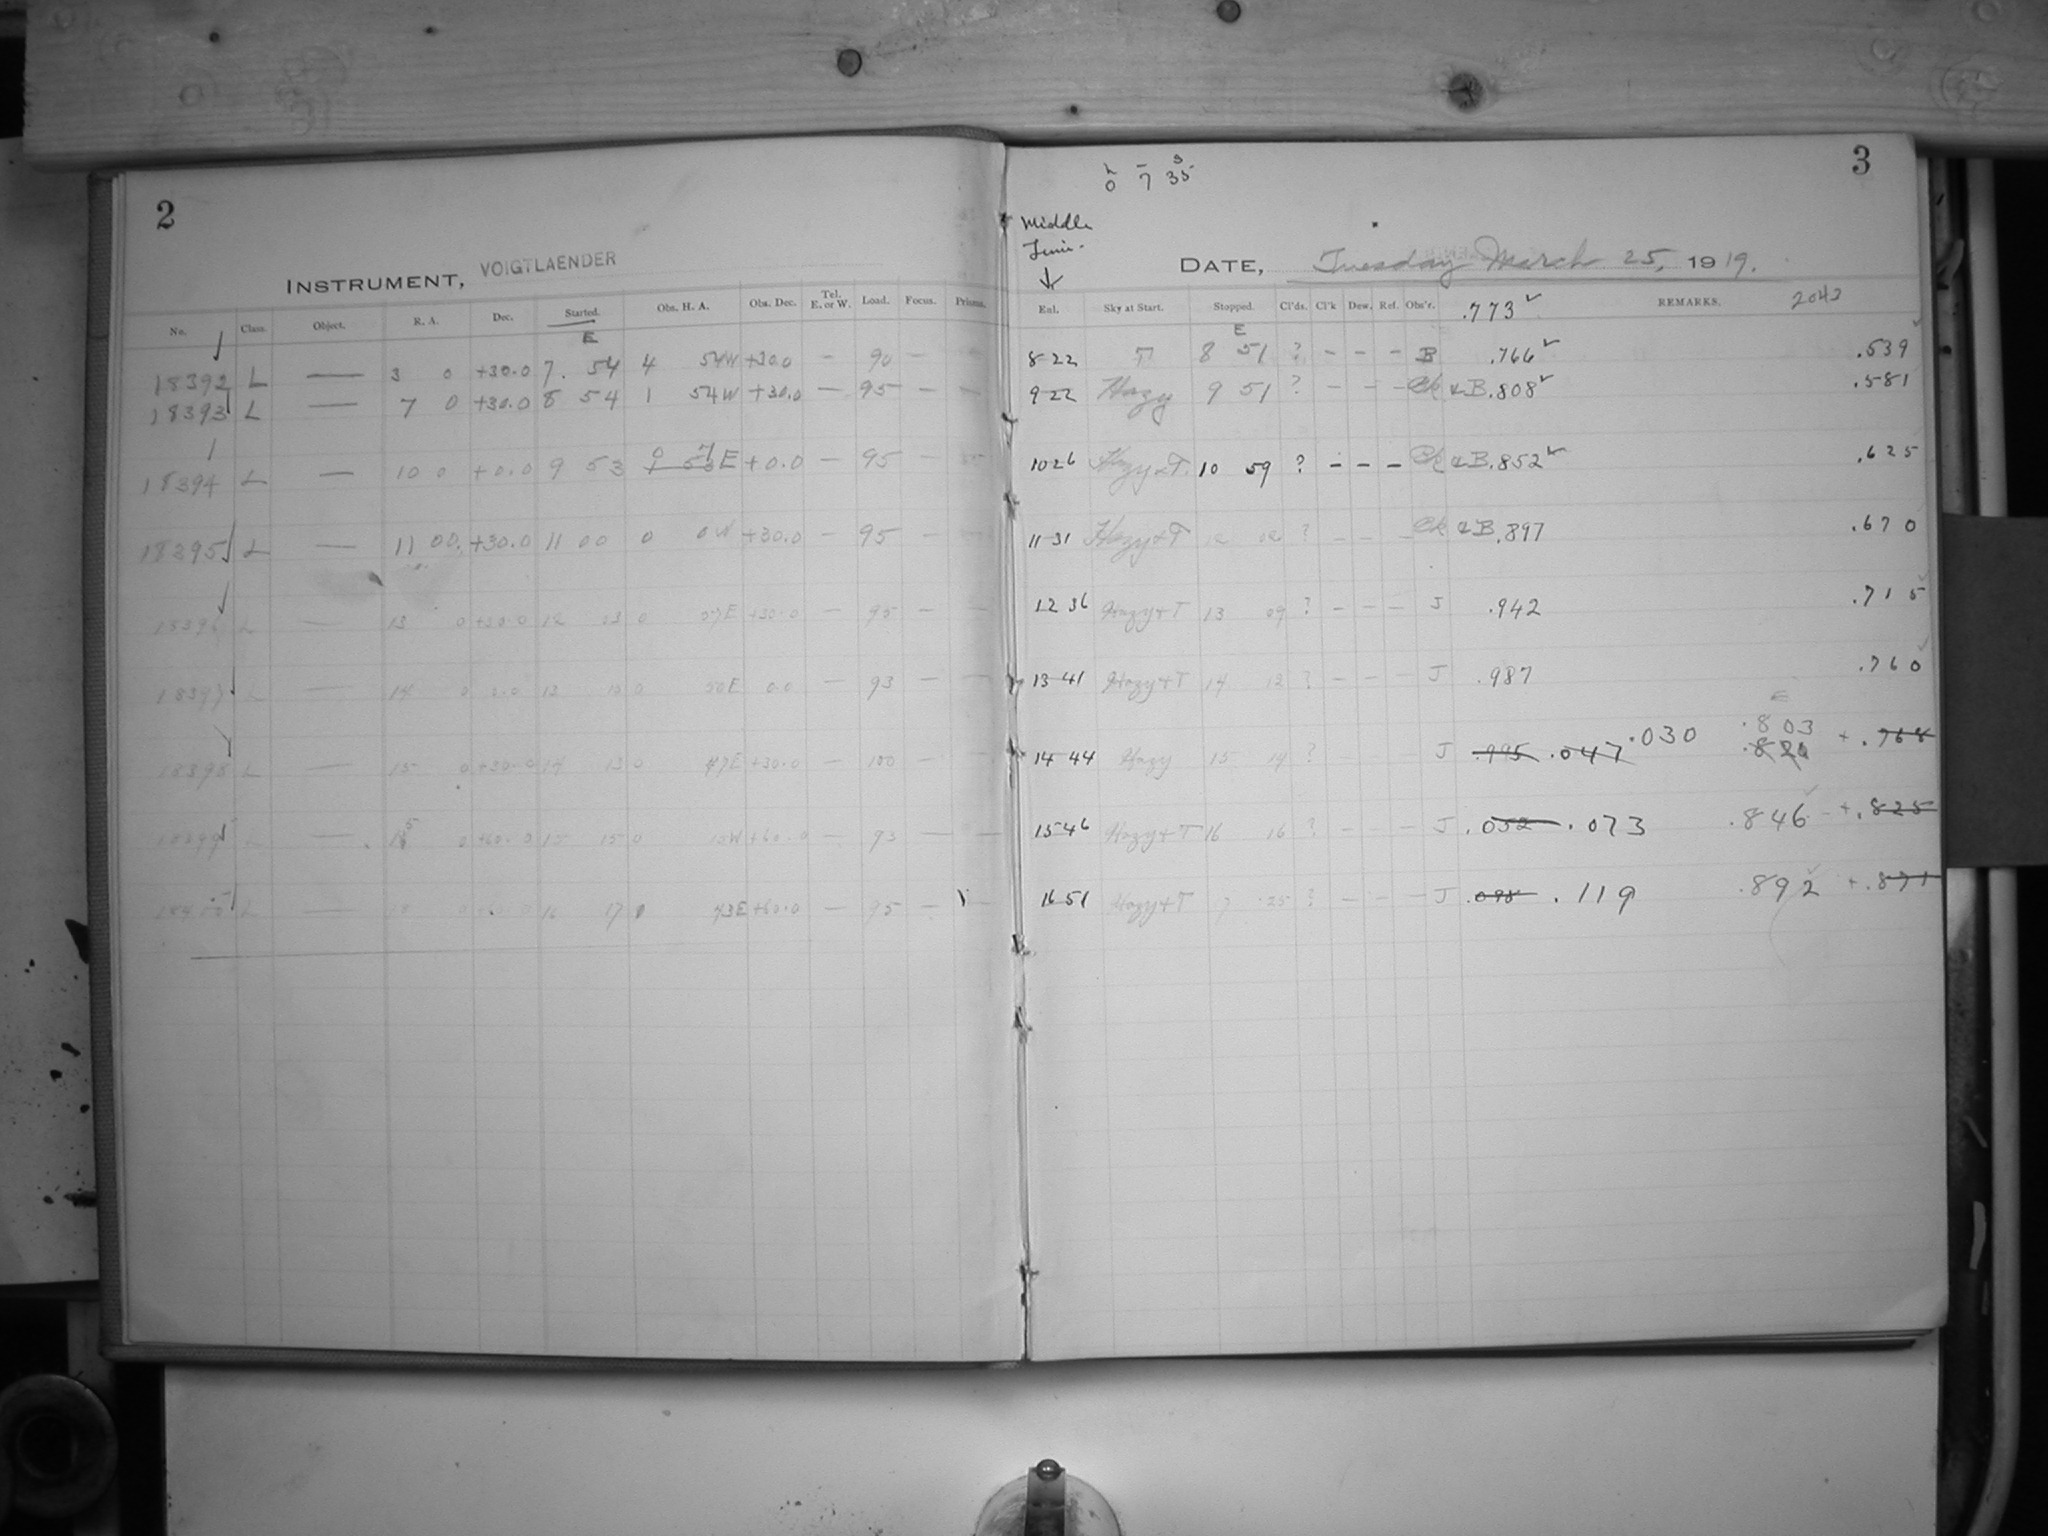 2
INSTRUMENT, VOIGTLAENDER
No. Class. Object. R. A. Dec. Started. Obs. H. A. Obs. Dec. Tel. E. or W. Load. Focus. Prisms.
E
18392 L — 3 0 +30.0 7. 54 4 54W +30.0 — 90 —
18393 L — 7 0 +30.0 8 54 1 54W +30.0 — 95 —
18394 L — 10 0 +0.0 9 53 0 7E +0.0 — 95 —
18395 L — 11 00. +30.0 11 00 0 0W +30.0 — 95 —
18396 L — 13 0 +30.0 12 03 0 57E +30.0 — 95 — —
18397 L — 14 0 0.0 13 10 0 50E 0.0 — 93 — —
18398 L — 15 0 +30.0 14 13 0 47E +30.0 — 100 — —
18399 L — 15 0 +60.0 15 15 0 15W +60.0 — 93 — —
18400 L — 0 +60.0 16 17 0 43E +60.0 — 95 — —
3
h – s
0 7 35
Middle
DATE, Tuesday March 25, 1919.
Enl. Sky at Start. Stopped. Cl'ds. Cl'k Dew. Ref. Obs'r. .773 REMARKS. 2043
E
8-22 T 8 51 ? — — — B .766 .539
9-22 Hazy 9 51 ? — — — Ck &B .808 .581
10 26 Hazy & T. 10 59 ? — — — Ck &B .852 .625
11-31 Hazy + T 12 02 ? — — — Ck &B .897 .670
12 36 Hazy + T 13 09 ? — — — J .942 .715
13-41 Hazy + T 14 12 ? — — — J .987 .760
E
14 44 Hazy 15 14 ? J .995 .047 .030 .803 + .768
15-46 Hazy + T 16 16 ? — — — J .052 .073 .846 + .825
16 51 Hazy + T 7 25 ? — — — J .098 .119 .892 + .871